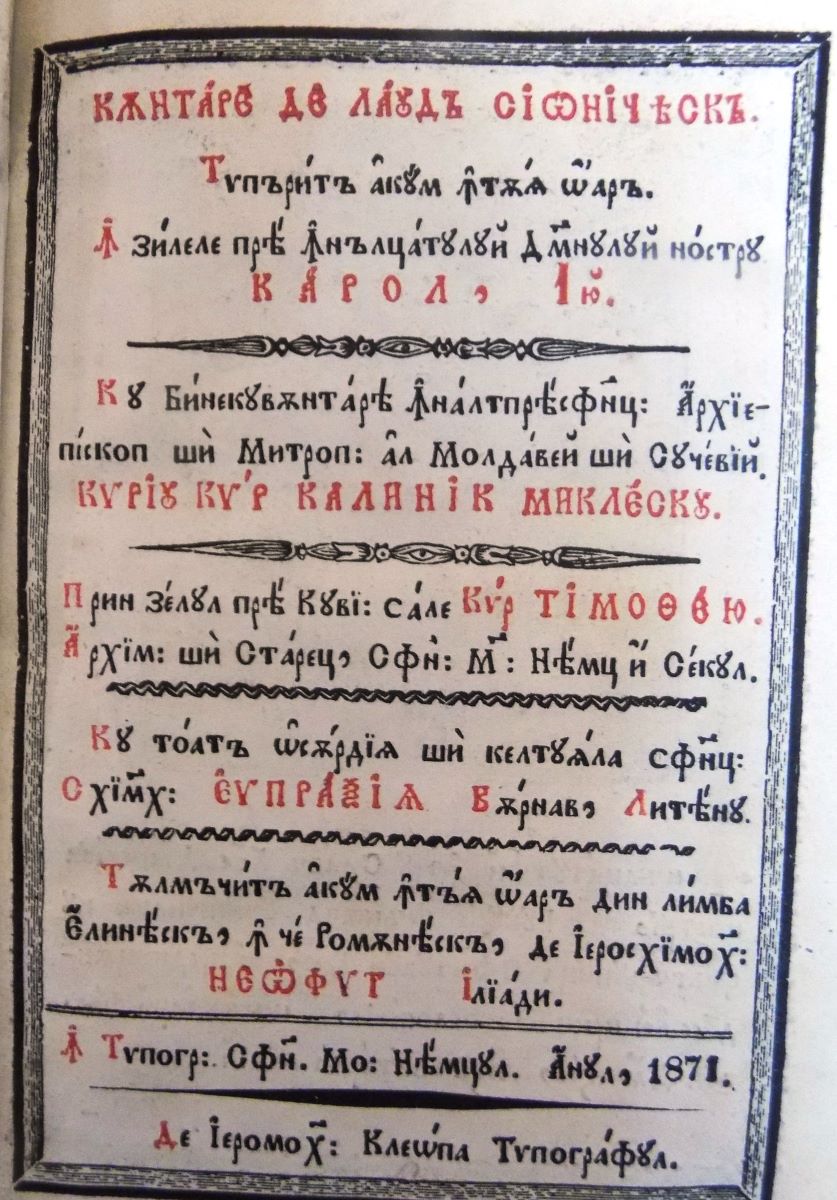 КѪНТА́РЄ ДЄ ЛА́ꙊДЪ СІѠНІЧѢСКЪ.
Тѵпъри́тъ а҆кꙋ́м ꙟ҆тѫ́ѧ ѡ҆́аръ.
Ꙟ҆ зи́леле прѣ́ ꙟ҆нълца́тꙋлꙋй Дм҃нꙋлꙋй но́стрꙋ
КА́РОЛ, І ю҃.
Кꙋ Би́некꙋвѫнта́рѣ ꙟ҆на́лтпрѣ́сфн҃ц: А҆рхїе-
пі́скоп шѝ Митроп: а҆л Молда́вей шѝ Сꙋче́вїй.
КѴРІꙊ КѴ́Р КАЛИНІК МИКЛЄ́СКꙊ.
При́н зе́лꙋл прѣ́ Кꙋві: са́ле Кѵ́р ТІМОѲЄ́Ю.
А҆рхїм: шѝ Ста́рец, Сфн҃: М҃: Нѣ́мц и҆ Се́кꙋл.
Кꙋ то́атъ ѡ҆сѫ́рдїѧ шѝ келтꙋѧ́ла сфн҃ц:
Схїм҃х: Є҆ѴПРАѮІѦ Вѫ́рнав, Литѣ́нꙋ.
Тѫлмъчи́тъ а҆кꙋ́м ꙟ҆тъ́ѧ ѡ҆́аръ дин ли́мба
Є҆линѣ́скъ, ꙟ҆ че́ Ромѫнѣ́скъ, де І҆еросхїмох҃:
НЕѠ́ФѴТ І҆лїа́ди.
Ꙟ҆ Тѵпогр: Сфн҃. Мо: Нѣ́мцꙋл. А҆́нꙋл, 1871.
Де І҆еромох҃: Клеѡ́па Тѵпогра́фꙋл.